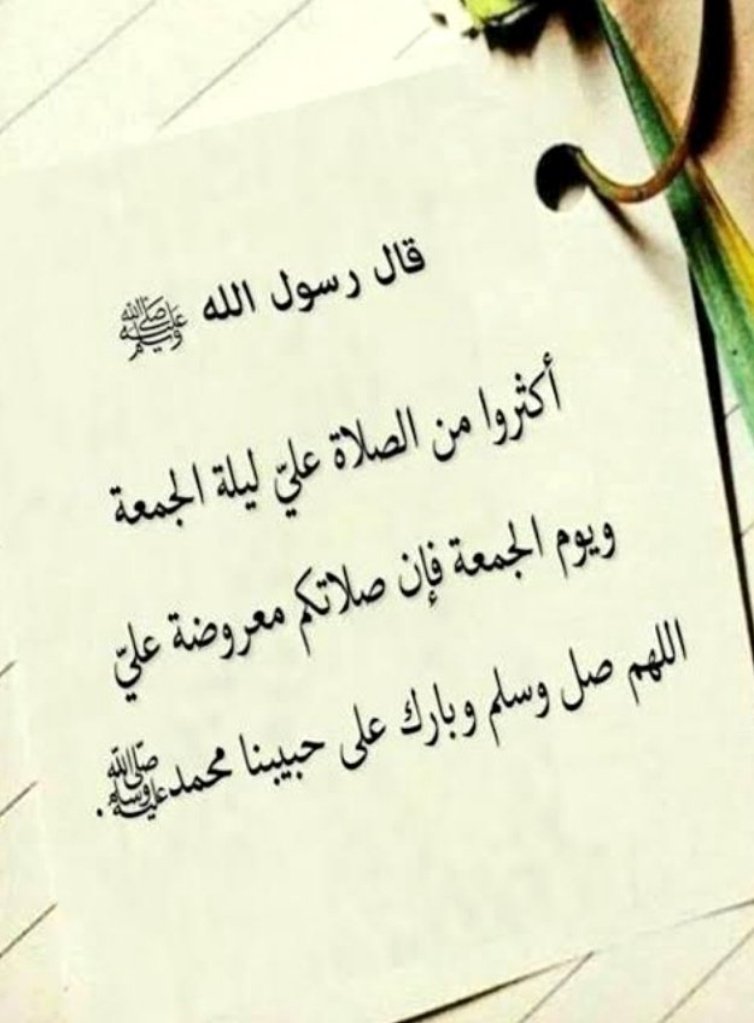 قال رسول الله ﷺ
أكثروا من الصلاة عليّ ليلة الجمعة
ويوم الجمعة فإن صلاتكم معروضة عليّ
اللهم صل وسلم وبارك على حبيبنا محمد ﷺ.